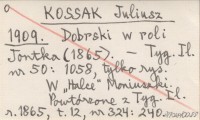 KOSSAK Juliusz
1909. Dobrski w roli
Jontka (1865). – Tyg. Il.
nr 50: 1058, tylko rys.
W „Halce" Moniuszki.
Powtórzone z Tyg. Il.
r. 1865, t. 12, nr 324: 240.